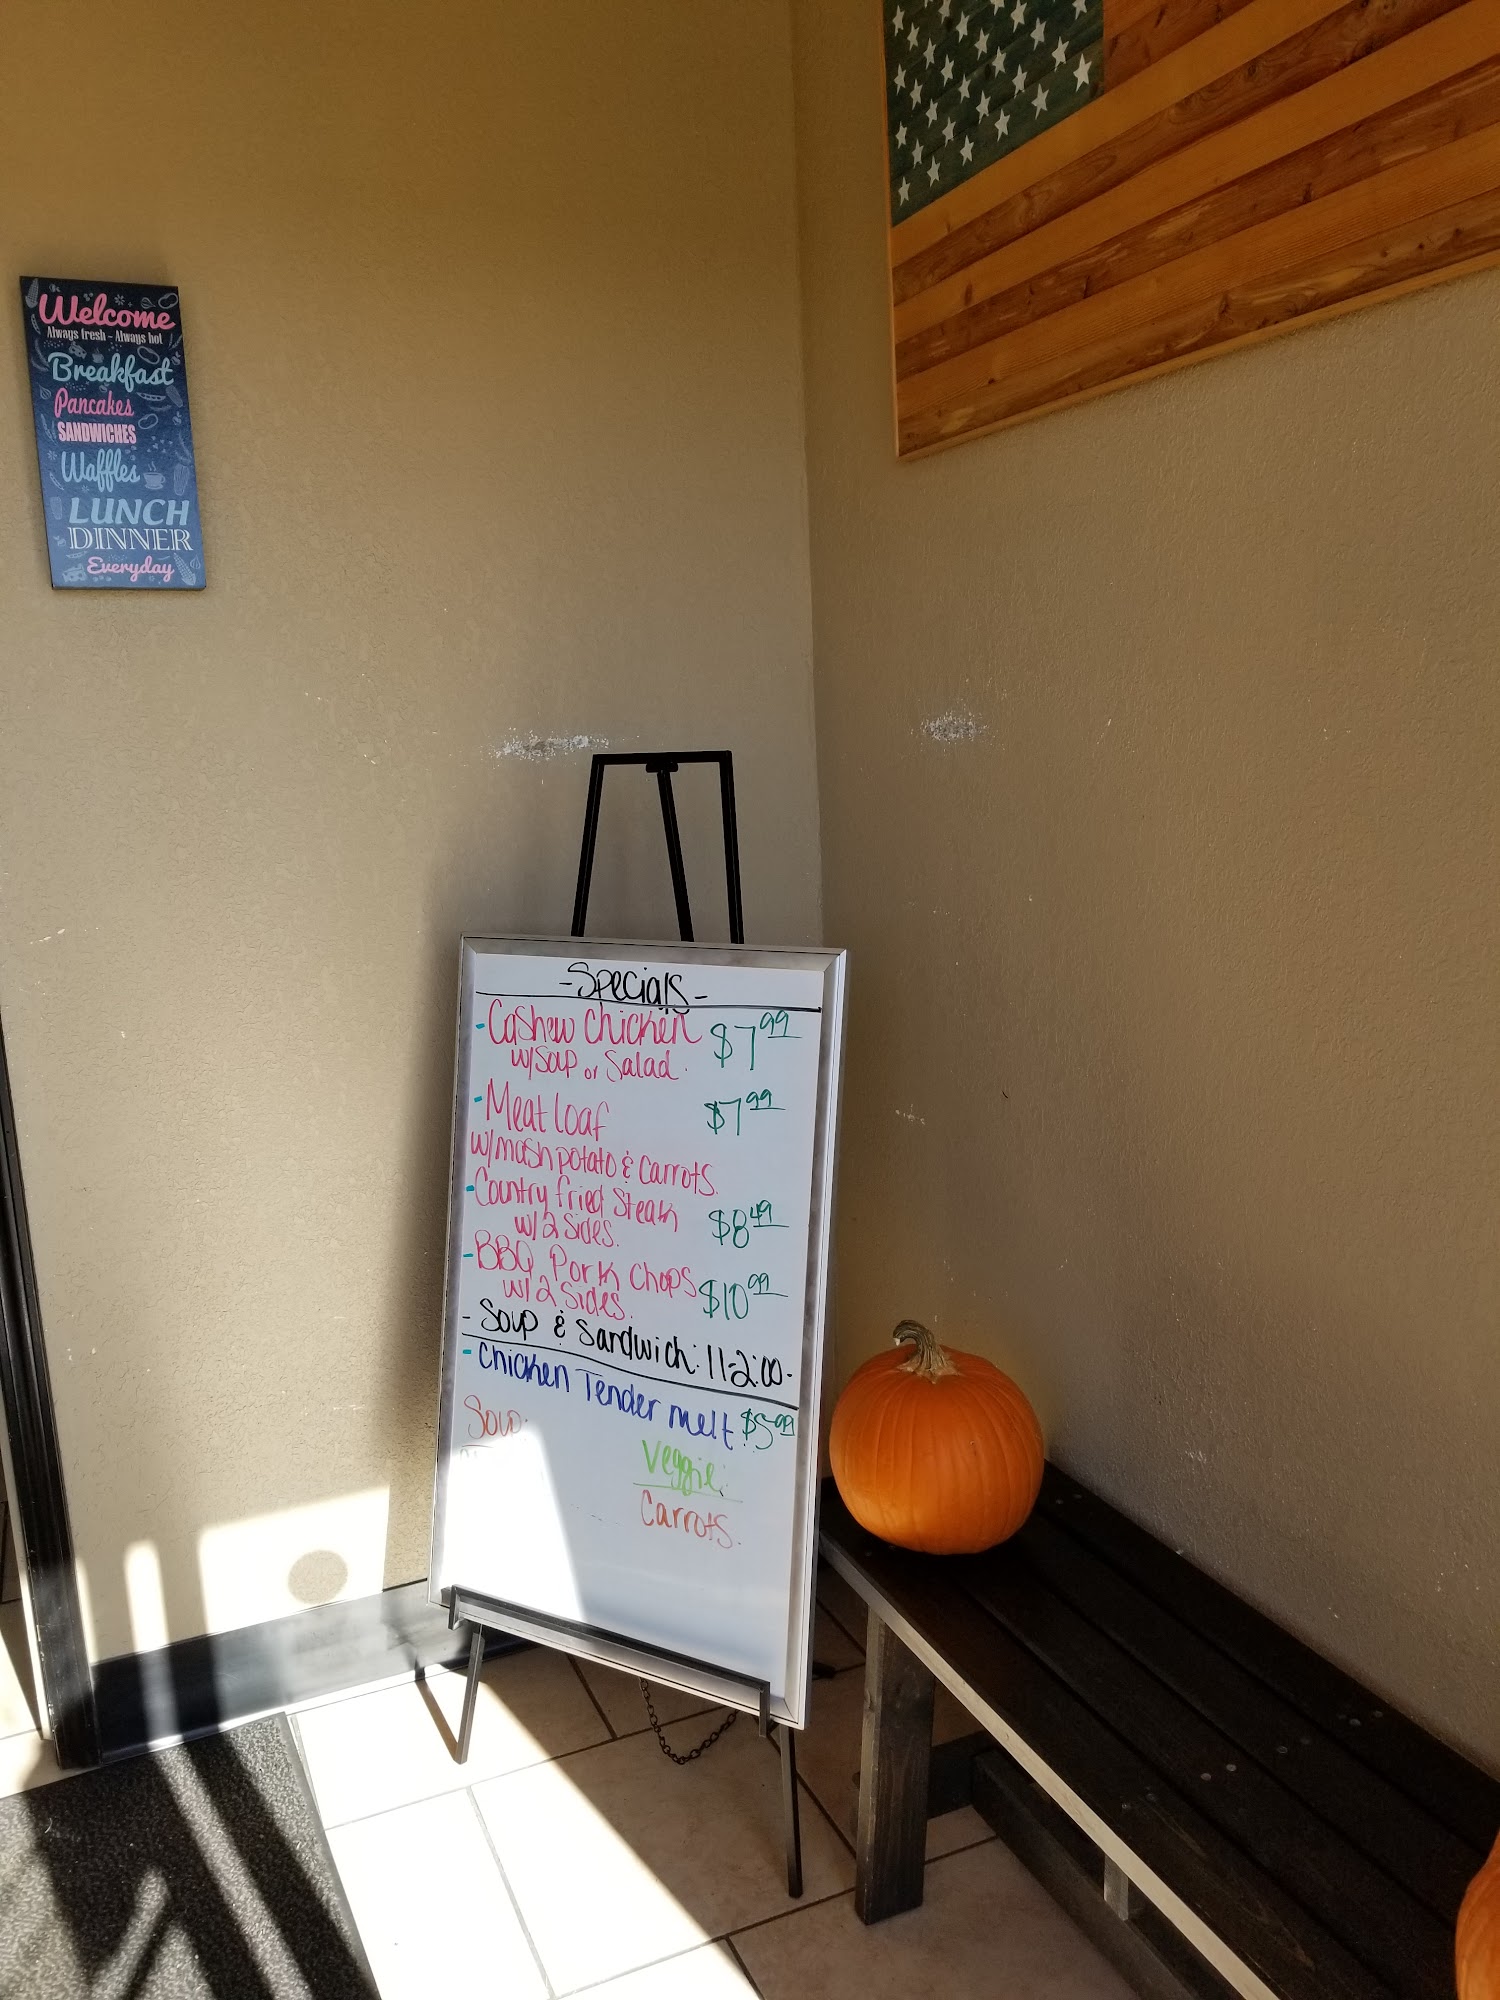 Welcome
Always fresh - Always hot
Breakfast
Pancakes
SANDWICHES
Waffles
LUNCH
DINNER
Everyday
- Specials -
- Cashew Chicken $7.99
w/ Soup or Salad.
- Meat loaf $7.99
w/ mash potato & Carrots.
- Country fried Steak $8.49
w/ 2 Sides.
- BBQ Pork Chops $10.99
w/ 2 Sides.
- Soup & Sandwich: 11-2:00-
- Chicken Tender melt $5.99
Soup:
Veggie:
Carrots.